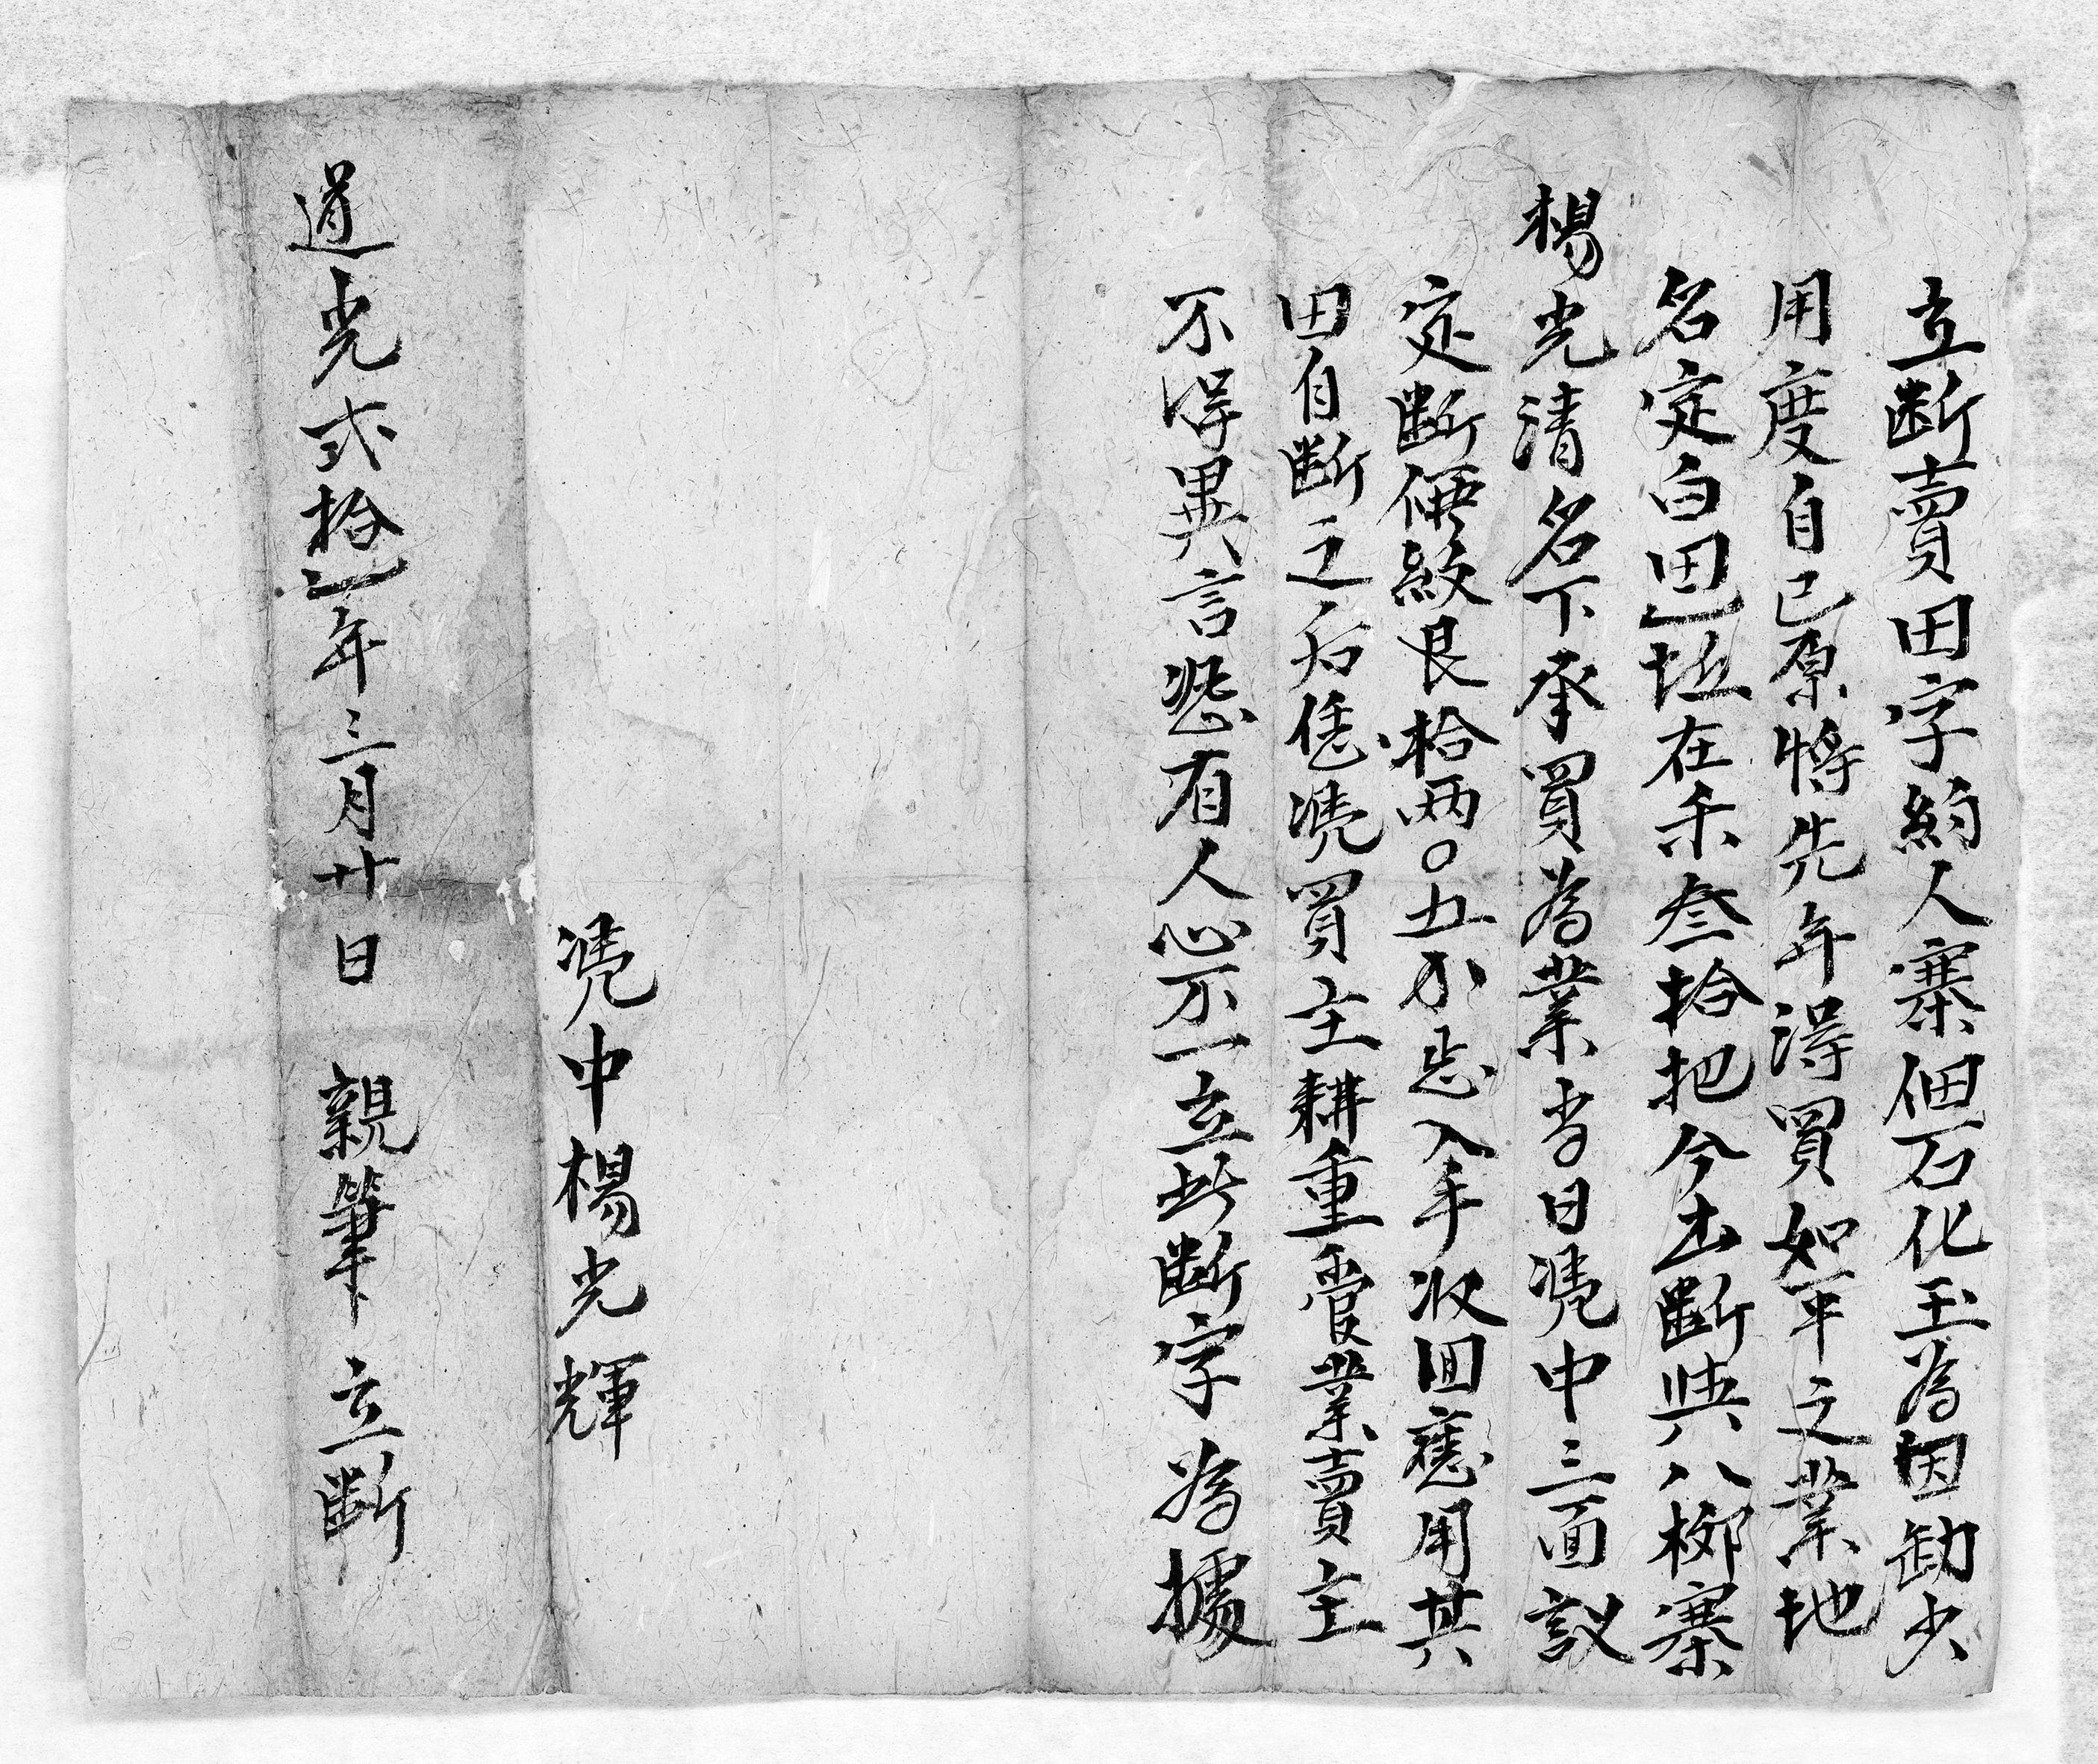 立断賣田字約人寨佃石化玉為因缺少
用度自己原将先年得買如平之業地
名定白田一坵在禾叁拾把今出断與八栁寨
楊光清名下承買為業當日凴中三面議
定断價紋艮拾兩〇五分忘入手收回應用其
田自断之后恁凴買主耕重管業賣主
不得異言恐有人心不一立此断字為據
凴中楊光輝
道光弍拾一年三月廿日 親筆立断